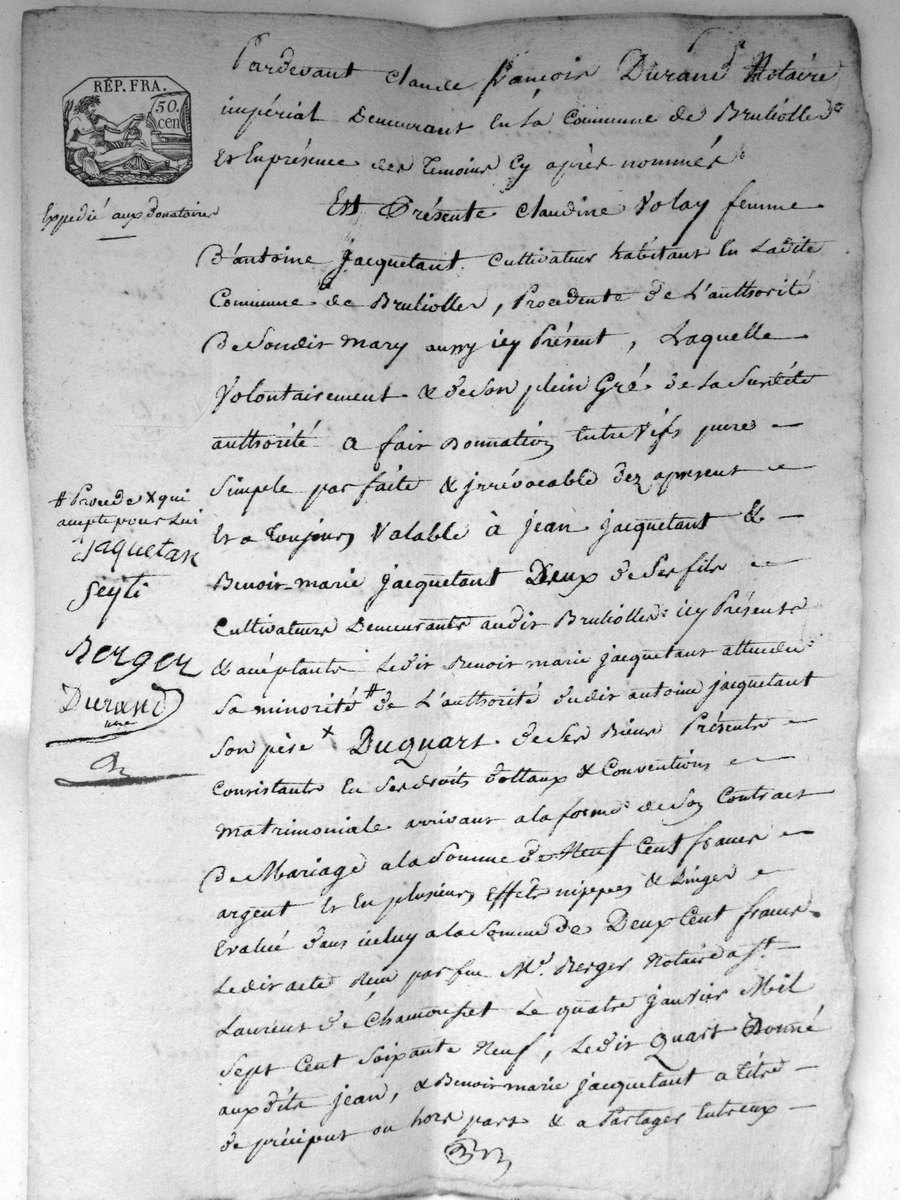 RÉP. FRA.
50.
cen
Expedié aux donatoires
Pardevant Claude françois Durand Notaire
impérial Demeurant En la Commune de Brulioller
Et En présence des Temoins Cy après nommés
Est Présente Claudine Volay femme
D'antoine Jacquetant Cultivateur habitant En Ladite
Commune de Brulioller, Procedente de L'authorité
De Sondit mary aussy icy Présent, Laquelle
Volontairement & de Son plein Gré de La Susdité
authorité a fait Donnation Entre Vifs pure
Simple parfaite & jrrévocable dez apresent
Et a Toujours Valable à jean jacquetant &
Benoit-marie jacquetant Deux de Ses fils
Cultivateurs Demeurants audit Brulioller icy Présents
& acceptants Ledit Benoit marie jacquetant attendu
Sa minorité # de L'authorité dudit antoine jacquetant
Son père x Du Quart de Ses Biens Présents
Consistants En Ses droits dottaux & Conventions
Matrimoniale arrivant a la forme de Son Contract
De Mariage a la Somme de Neuf Cent francs
argent Et En plusieurs Effets nippes & Linges
Evalué dans iceluy a la Somme de Deux Cent francs
Ledit acte Reçu par feu Me. Berger Notaire a St.
Laurent de Chamousset Le quatre janvier Mil
Sept Cent Soixante Neuf, Ledit Quart Donné
auxdits jean, & Benoit marie jacquetant a titre
de préciput ou hors part & a Partager Entreux
# Procede x qui
accepte pour Lui
Jaquetan
Seyti
Berger
Durand
nre